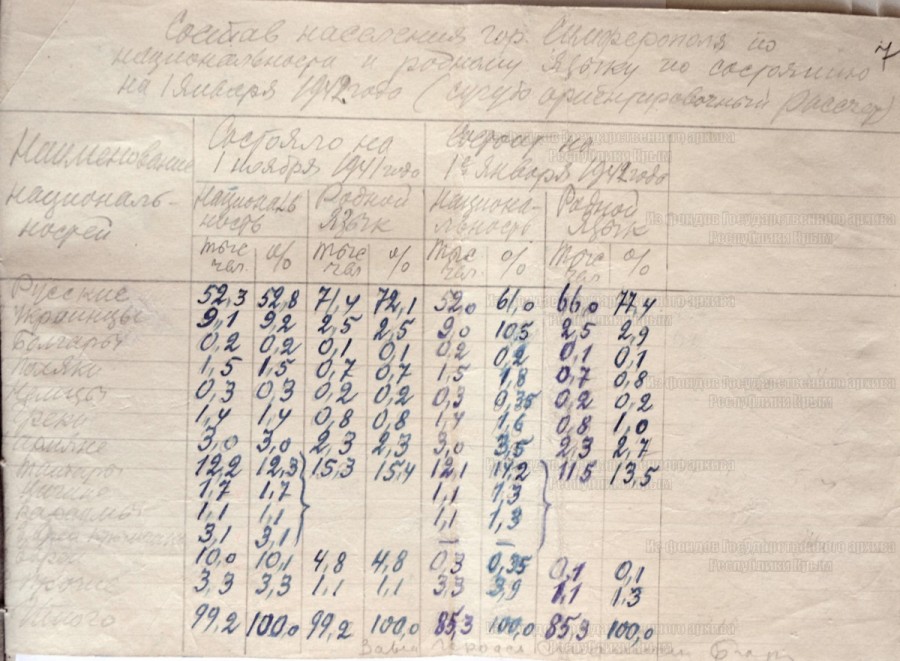 7
Состав населения гор. Симферополя по
национальности и родному языку по состоянию
на 1 января 1942 года (сугубо ориентировочный рассчет)
Наименование национальностей
Состояло на 1 ноября 1941 года
Состоит на 1е января 1942 года
Националь ность Родной Язык Национа- льность Родной Язык
тыс чел. % тыс чел % тыс чел. % тыс чел. %
Русские 52,3 52,8 71,4 72,1 52,0 61,0 66,0 77,4
Украинцы 9,1 9,2 2,5 2,5 9,0 10,5 2,5 2,9
Болгары 0,2 0,2 0,1 0,1 0,2 0,2 0,1 0,1
Поляки 1,5 1,5 0,7 0,7 1,5 1,8 0,7 0,8
Немцы 0,3 0,3 0,2 0,2 0,3 0,35 0,2 0,2
Греки 1,4 1,4 0,8 0,8 1,4 1,6 0,8 1,0
Армяне 3,0 3,0 2,3 2,3 3,0 3,5 2,3 2,7
Татары 12,2 12,3 15,3 15,4 12,1 14,2 11,5 13,5
1,7 1,7 1,1 1,3
Караимы 1,1 1,1 1,1 1,3
3,1 3,1 — —
Евреи 10,0 10,1 4,8 4,8 0,3 0,35 0,1 0,1
Прочие 3,3 3,3 1,1 1,1 3,3 3,9 1,1 1,3
Итого 99,2 100,0 99,2 100,0 85,3 100,0 85,3 100,0
Из фондов Государственного архива
Республики Крым